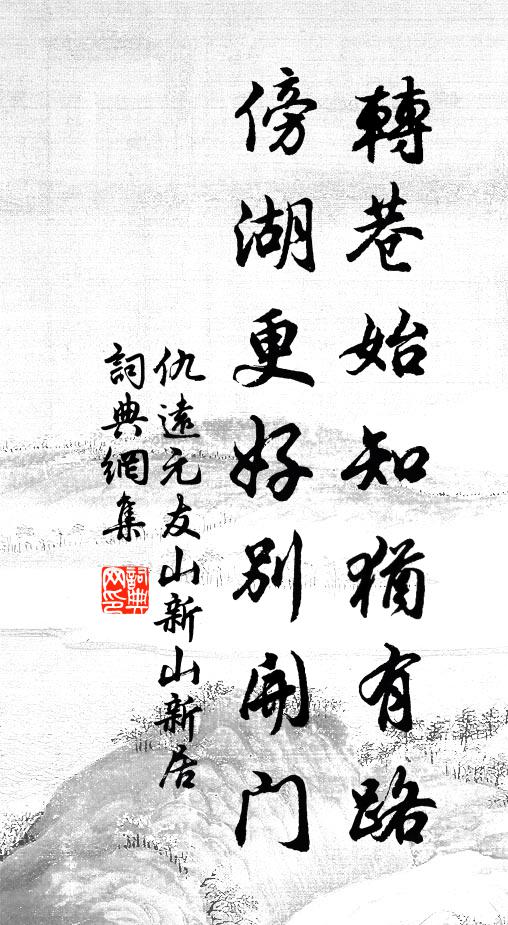 轉巷始知猶有路
傍湖更好別開門
仇遠元友山新山新居
詞典網集
詞典網印